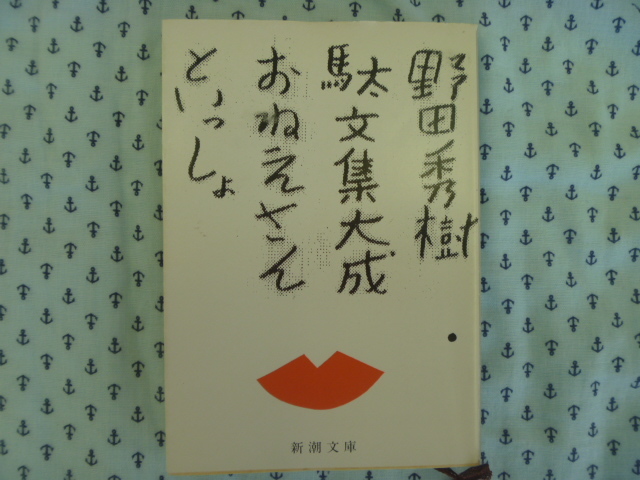 野田秀樹
駄文集大成
おねえさん
といっしょ
新潮文庫